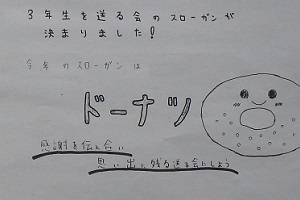 3年生を送る会のスローガンが
決まりました！
今年のスローガンは
ドーナツ
感謝を伝え合い
思い出に残る送る会にしよう